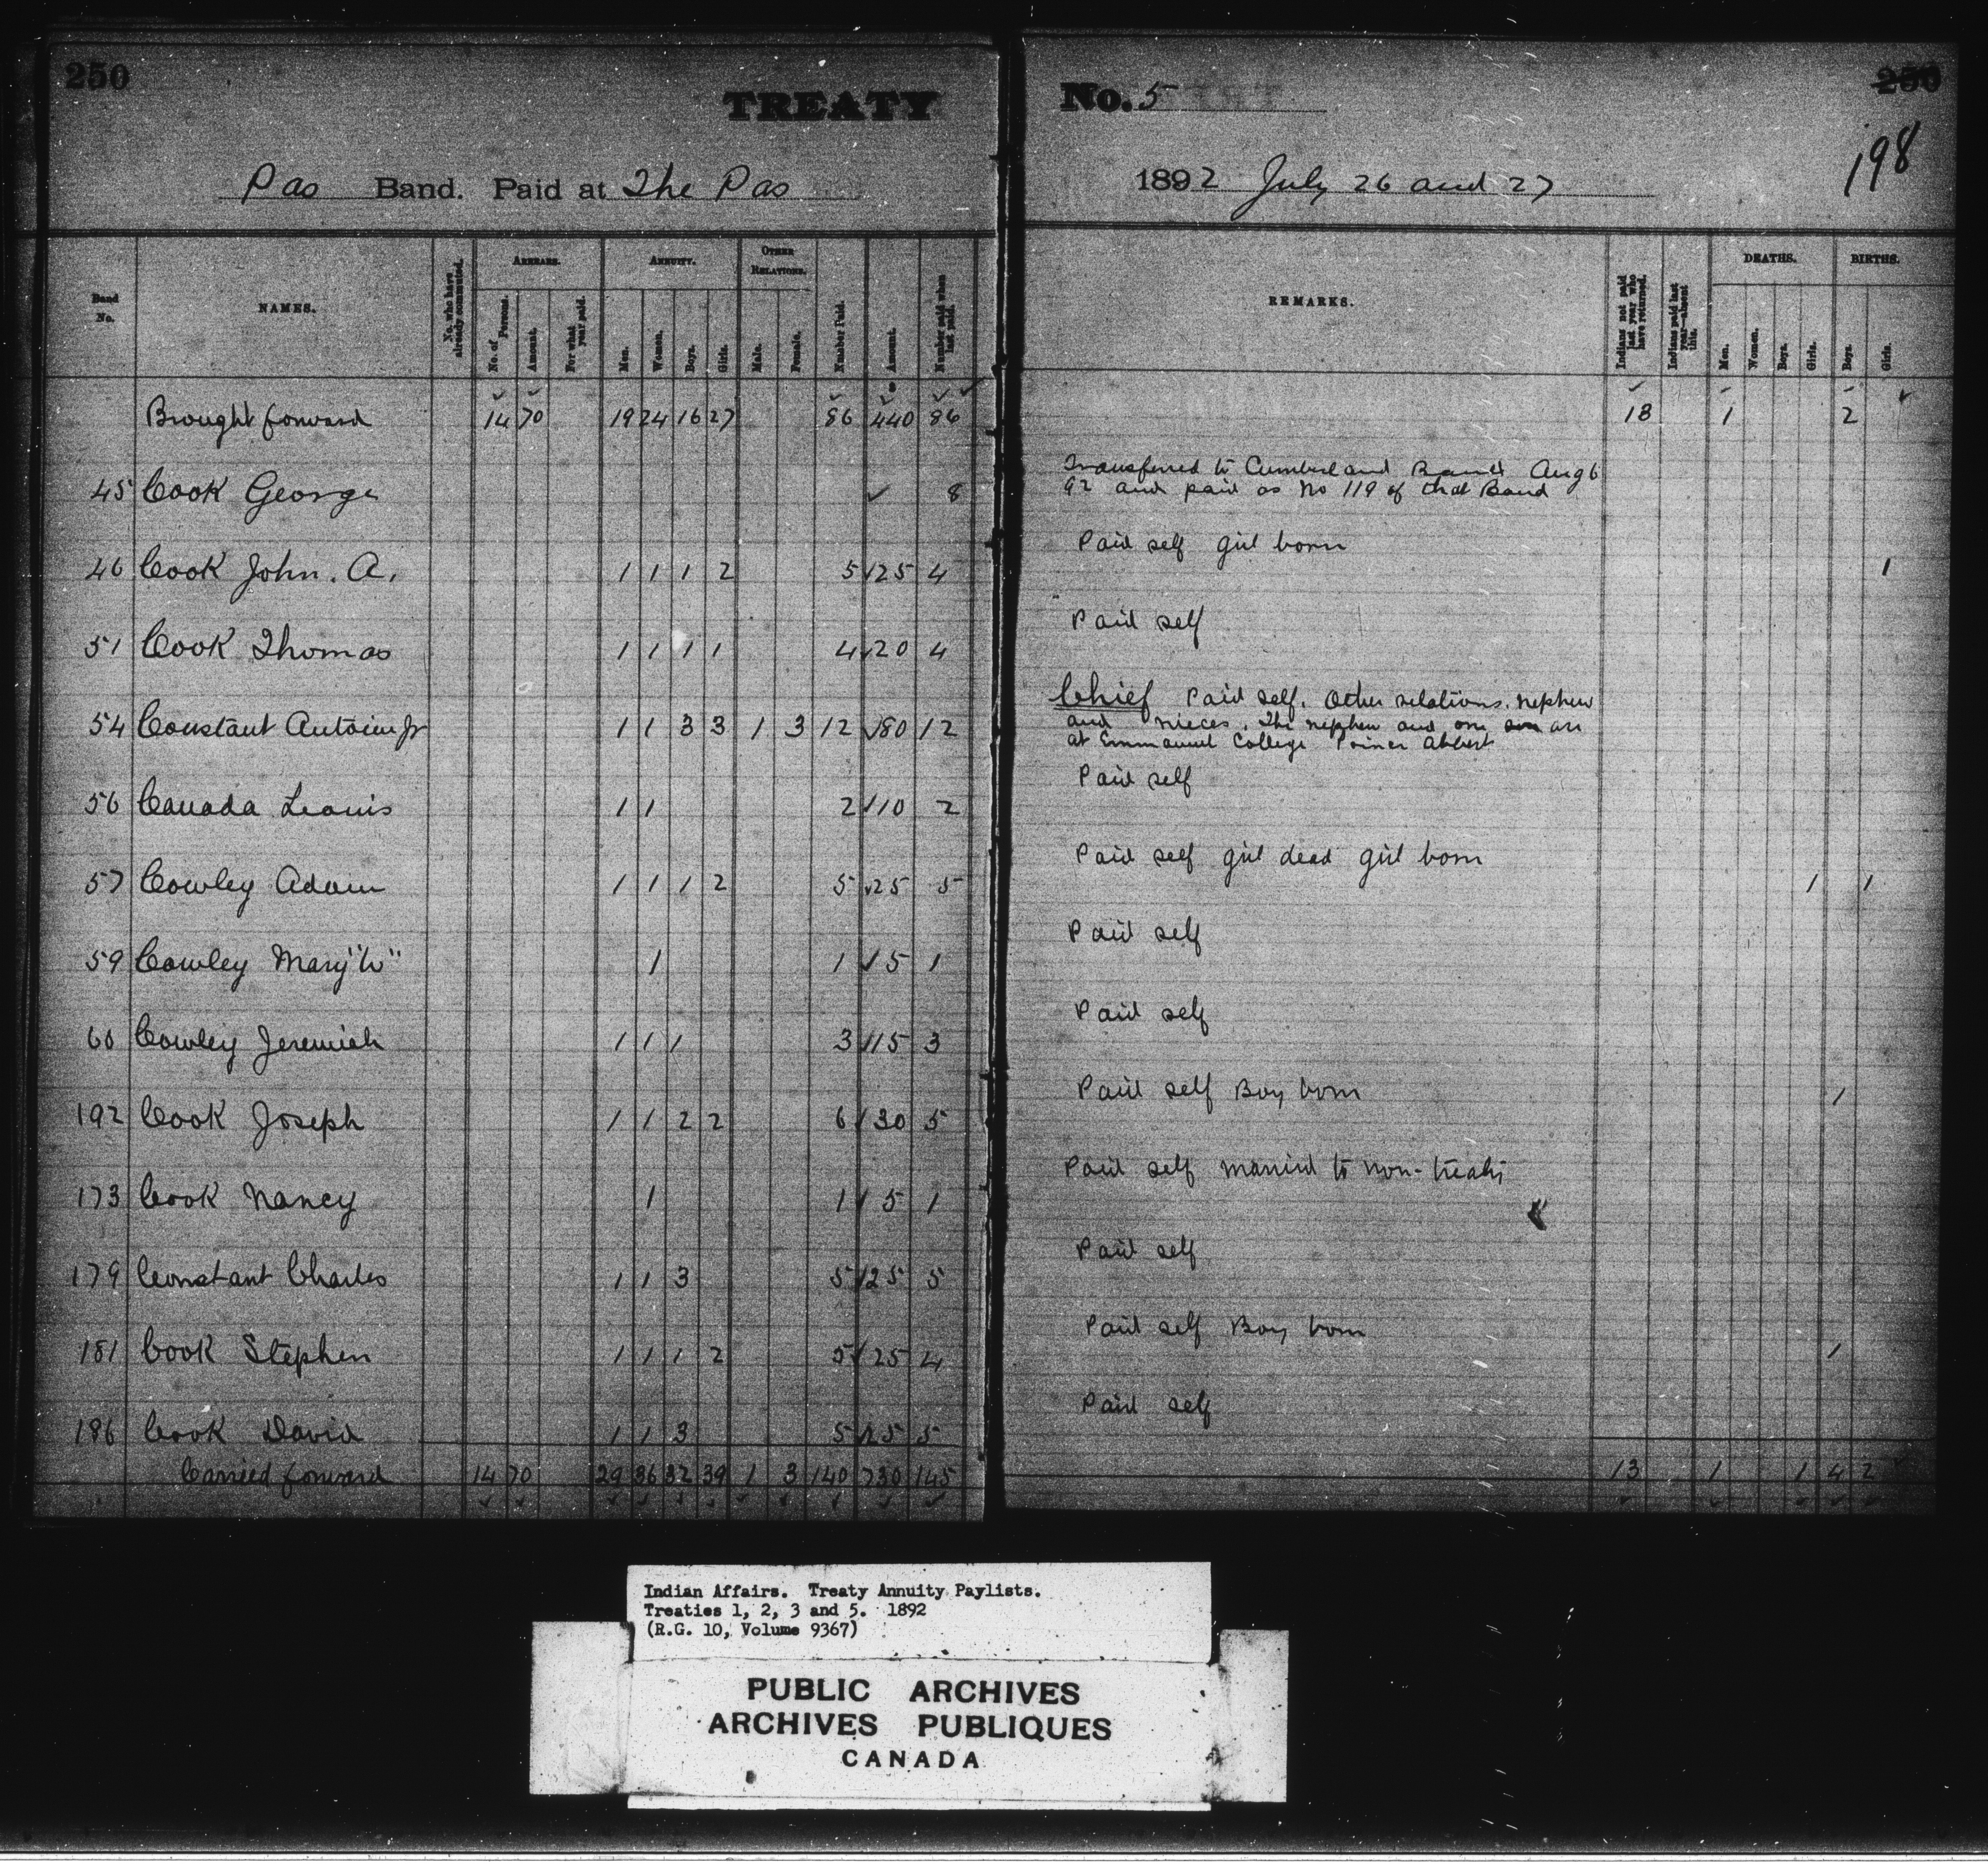 250
TREATY
Pas Band. Paid at The Pas
Band No.
NAMES.
No. who have already commuted.
ARREARS.
No. of Persons.
Amount.
For what year paid.
ANNUITY.
Men.
Women.
Boys.
Girls.
OTHER RELATIONS.
Male.
Female.
Number Paid.
Amount.
Number paid when last paid.
Brought forward 14 70 19 24 16 27 86 440 86
45 Cook George 8
46 Cook John. A. 1 1 1 2 5 25 4
51 Cook Thomas 1 1 1 1 4 20 4
54 Constant Antoine Jr 1 1 3 3 1 3 12 80 12
56 Canada Louis 1 1 2 10 2
57 Cowley Adam 1 1 1 2 5 25 5
59 Cowley Mary "W" 1 1 5 1
60 Cowley Jeremiah 1 1 1 3 15 3
192 Cook Joseph 1 1 2 2 6 30 5
173 Cook Nancy 1 1 5 1
179 Constant Charles 1 1 3 5 25 5
181 Cook Stephen 1 1 1 2 5 25 4
186 Cook David 1 1 3 5 25 5
Carried forward 14 70 29 36 32 39 1 3 140 730 145
No. 5
250
198
1892 July 26 and 27
REMARKS.
Indians not paid last year who have returned.
Indians paid last year—absent this.
DEATHS.
Men.
Women.
Boys.
Girls.
BIRTHS.
Boys.
Girls.
18 1 2
Transferred to Cumberland Band Aug 6
92 and paid as No 119 of that Band
Paid self girl born 1
Paid self
Chief Paid self. Other relations. nephew
and nieces. The nephew and one son are
at Emmanuel College Prince Albert
Paid self
Paid self girl dead girl born 1 1
Paid self
Paid self
Paid self Boy born 1
Paid self married to non-treaty
Paid self
Paid self Boy born 1
Paid self
13 1 1 4 2
Indian Affairs. Treaty Annuity Paylists.
Treaties 1, 2, 3 and 5. 1892
(R.G. 10, Volume 9367)
PUBLIC ARCHIVES
ARCHIVES PUBLIQUES
CANADA